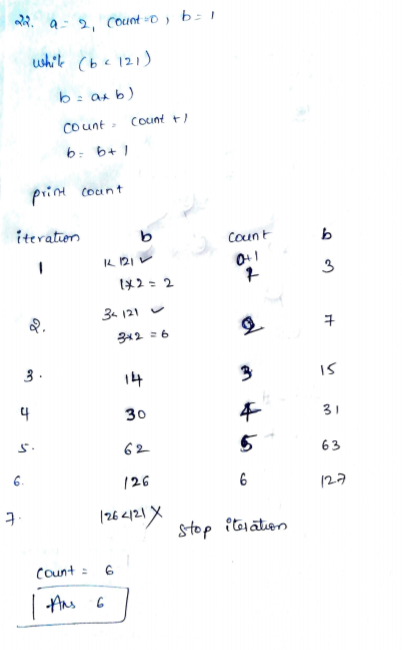 22. a = 2, count=0, b = 1
while (b < 121)
b = a*b)
count = count +1
b = b+1
print count
iteration b count b
1 1< 121 ✓ 0+1 3
1×2 = 2 1
2. 3< 121 ✓ 2 7
3*2 = 6
3. 14 3 15
4 30 4 31
5. 62 5 63
6. 126 6 127
7. 126<121 X stop iteration
count = 6
Ans 6